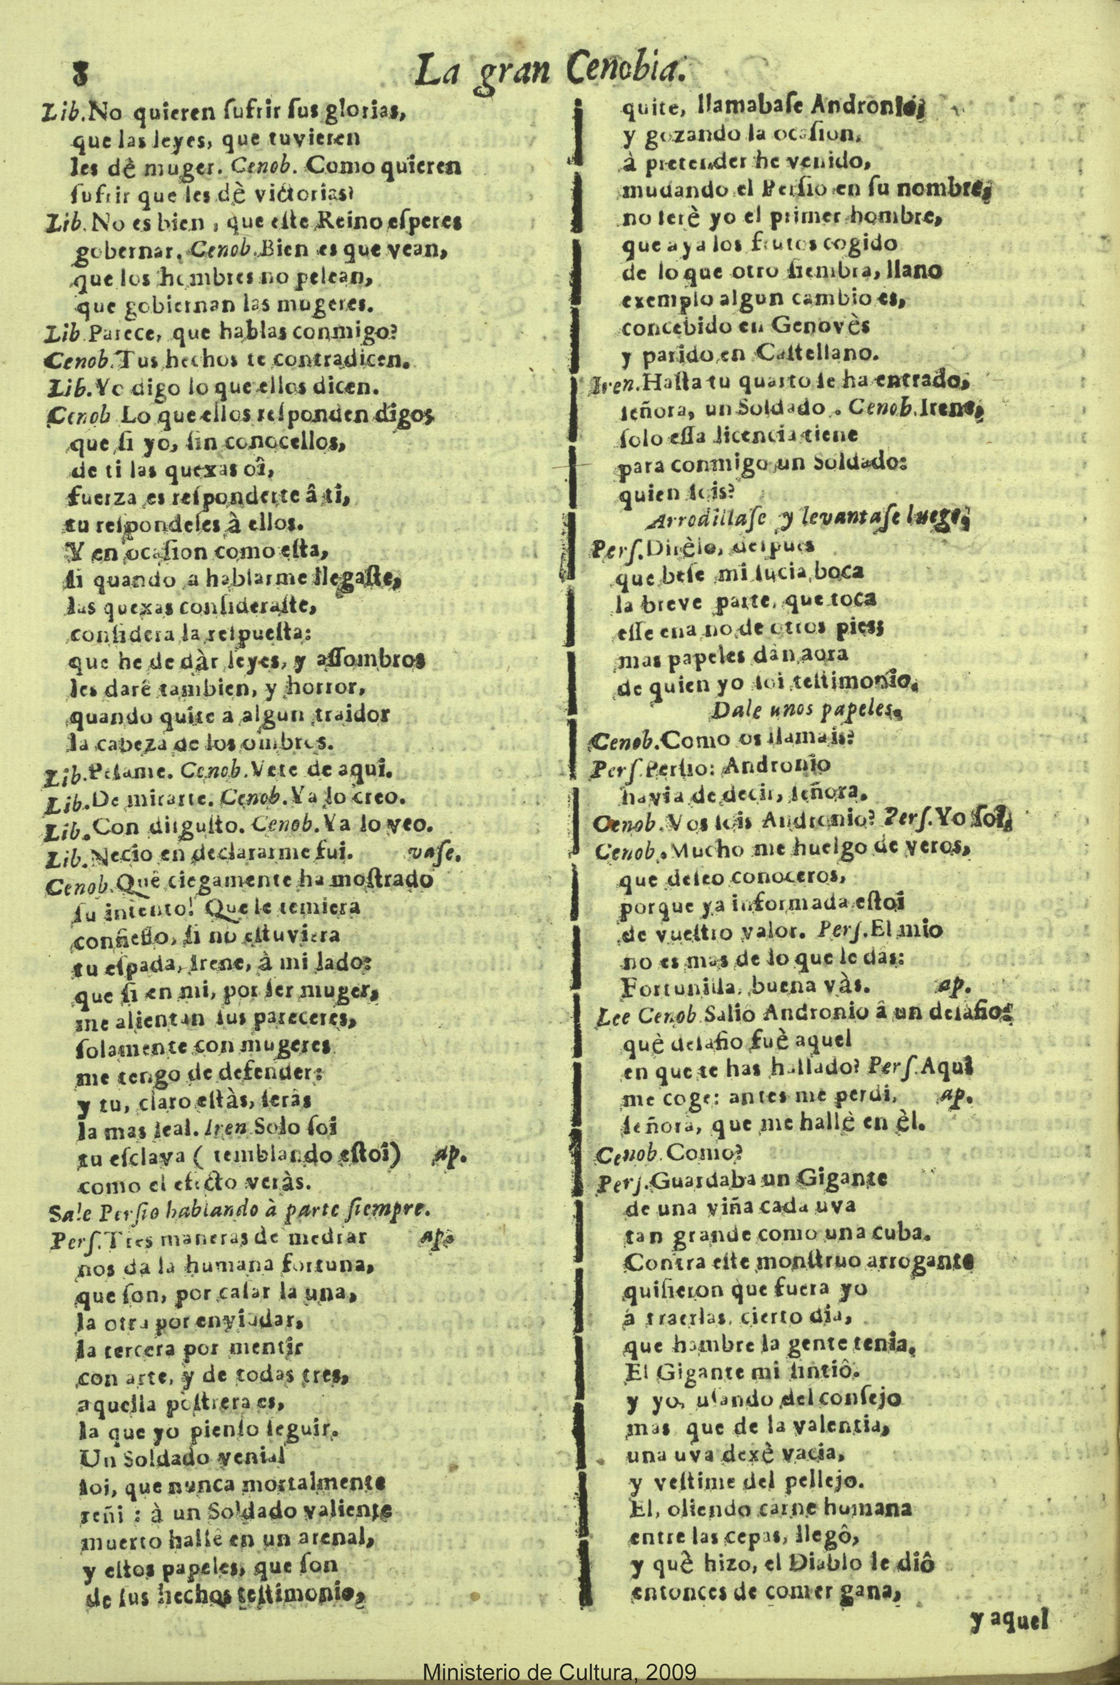 8
La gran Cenobia.
Lib. No quieren ſufrir ſus glorias,
que las leyes, que tuvieren
les dê muger. Cenob. Como quieren
ſufrir que les dè victorias?
Lib. No es bien, que eſte Reino eſperes
gobernar. Cenob. Bien es que vean,
que los hombres no pelean,
que gobiernan las mugeres.
Lib. Parece, que hablas conmigo?
Cenob. Tus hechos te contradicen.
Lib. Yo digo lo que ellos dicen.
Cenob. Lo que ellos reſponden digo;
que ſi yo, ſin conocellos,
de ti las quexas oî,
fuerza es reſponderte â tî,
tu reſpondeſes à ellos.
Y en ocaſion como eſta,
ſi quando a hablarme llegaſte,
las quexas conſideraſte,
conſidera la reſpueſta:
que he de dàr leyes, y aſſombros
les darê tambien, y horror,
quando quite a algun traidor
la cabeza de los ombros.
Lib. Peſame. Cenob. Vete de aquî.
Lib. De mirarte. Cenob. Ya lo creo.
Lib. Con diſguſto. Cenob. Ya lo veo.
Lib. Necio en declararme fui. vaſe.
Cenob. Quê ciegamente ha moſtrado
ſu intento! Que le temiera
confieſſo, ſi no eſtuviera
tu eſpada, Irene, à mi lado:
que ſi en mi, por ſer muger,
me alientan ſus pareceres,
ſolamente con mugeres
me tengo de defender:
y tu, claro eſtàs, ſeràs
la mas leal. Iren. Solo ſoi
tu eſclava ( temblando eſtoî) ap.
como el efecto veràs.
Sale Perſio hablando à parte ſiempre.
Perſ. Tres maneras de medrar ap.
nos da la humana fortuna,
que ſon, por caſar la una,
la otra por enviudar,
la tercera por mentir
con arte, y de todas tres,
aquella poſtrera es,
la que yo pienſo ſeguir.
Un Soldado venial
ſoi, que nunca mortalmente
reñi: à un Soldado valiente
muerto hallê en un arenal,
y eſtos papeles, que ſon
de ſus hechos teſtimonio,
quite, llamabaſe Andronio;
y gozando la ocaſion,
à pretender he venido,
mudando el Perſio en ſu nombre,
no ſerè yo el primer hombre,
que aya los frutos cogido
de lo que otro ſiembra, llano
exemplo algun cambio es,
concebido en Genovès
y parido en Caſtellano.
Iren. Haſta tu quarto ſe ha entrado,
ſeñora, un Soldado. Cenob. Irene,
ſolo eſſa licencia tiene
para conmigo un Soldado:
quien ſois?
Arrodillaſe y levantaſe luego;
Perſ. Dirèlo, deſpues
que beſe mi ſucia boca
la breve parte, que toca
eſſe enano de otros pies;
mas papeles dàn aora
de quien yo ſoi teſtimonîo.
Dale unos papeles.
Cenob. Como os llamais?
Perſ. Perſio: Andronio
havia de decir, ſeñora.
Cenob. Vos ſois Andronio? Perſ. Yo ſoî.
Cenob. Mucho me huelgo de veros,
que deſeo conoceros,
porque ya informada eſtoî
de vueſtro valor. Perſ. El mio
no es mas de lo que le das:
Fortunilla, buena vàs. ap.
Lee Cenob. Saliò Andronio â un deſafio:
què deſafio fuè aquel
en que te has hallado? Perſ. Aquî
me coge: antes me perdî, ap.
ſeñora, que me hallè en èl.
Cenob. Como?
Perſ. Guardaba un Gigante
de una viña cada uva
tan grande como una cuba.
Contra eſte monſtruo arrogante
quiſieron que fuera yo
á traerlas, cierto dia,
que hambre la gente tenîa.
El Gigante mi ſintiô.
y yo, uſando del conſejo
mas que de la valentia,
una uva dexè vacia,
y veſtime del pellejo.
El, oliendo carne humana
entre las cepas, llegô,
y quê hizo, el Diablo le diô
entonces de comer gana,
y aquel
Ministerio de Cultura, 2009